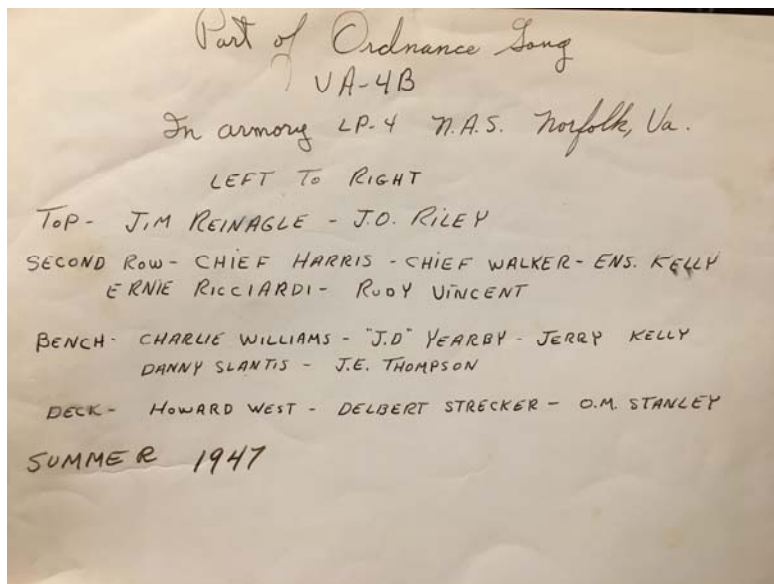 Part of Ordnance Gang
VA-4B
In armory LP-4 N.A.S. Norfolk, Va.
LEFT TO RIGHT
TOP- JIM REINAGLE - J.O. RILEY
SECOND ROW- CHIEF HARRIS - CHIEF WALKER- ENS. KELLY
ERNIE RICCIARDI- RUDY VINCENT
BENCH- CHARLIE WILLIAMS - "J.D" YEARBY - JERRY KELLY
DANNY SLANTIS - J.E. THOMPSON
DECK- HOWARD WEST - DELBERT STRECKER - O.M. STANLEY
SUMMER 1947